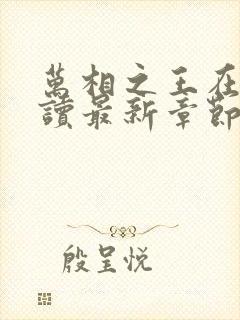 萬相之王在
讀最新章節
殷呈悅